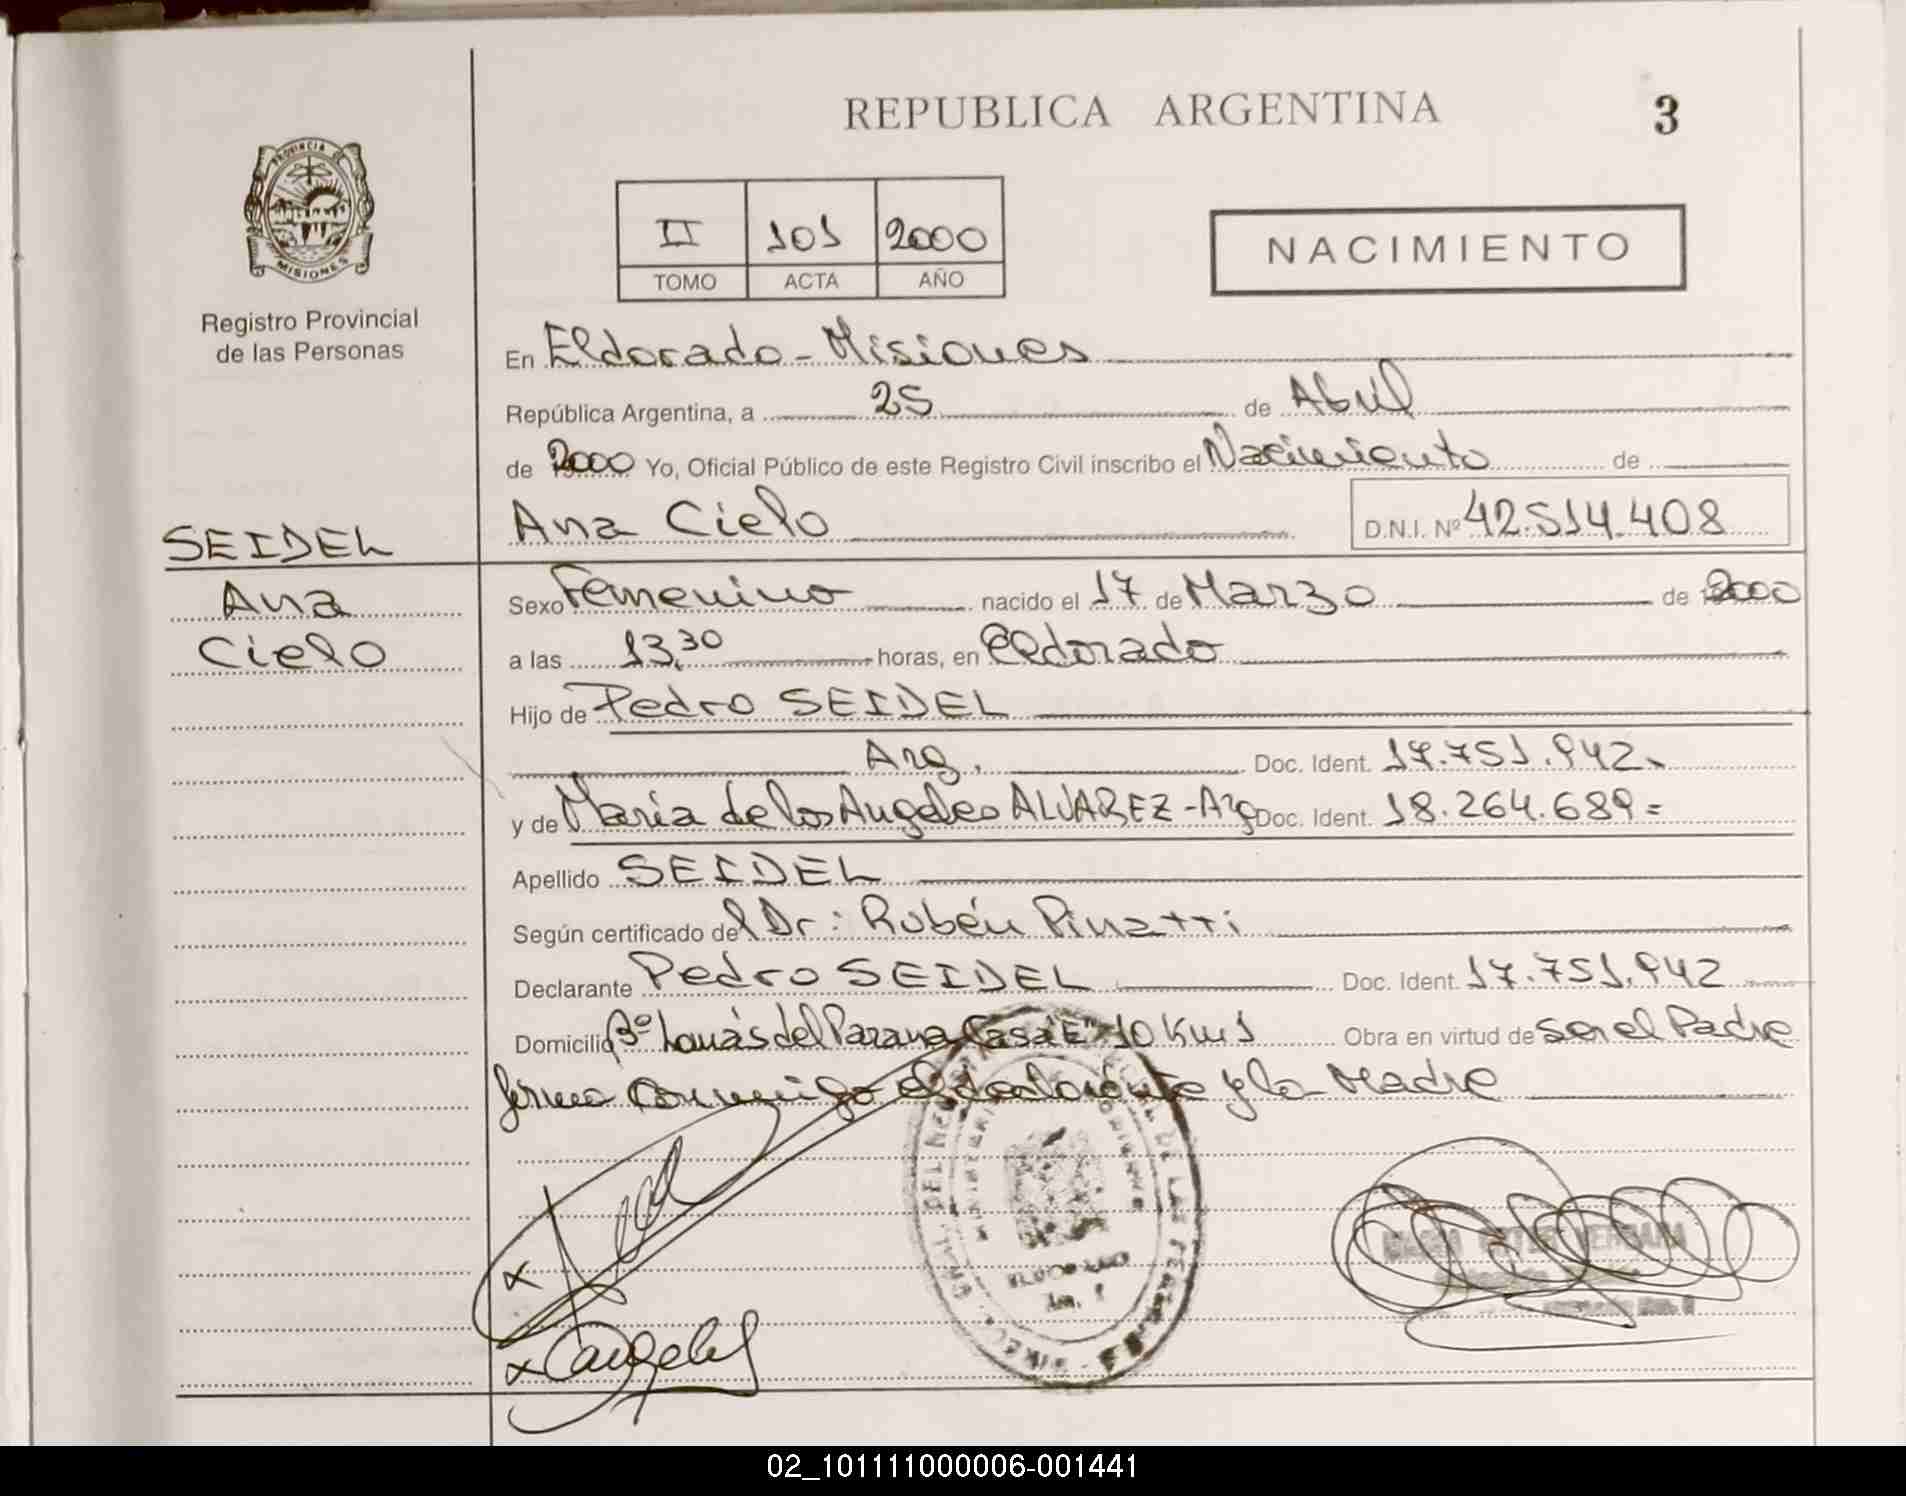 REPUBLICA ARGENTINA
3
PROVINCIA DE
MISIONES
Registro Provincial
de las Personas
II 101 2000
TOMO ACTA AÑO
NACIMIENTO
En Eldorado - Misiones
República Argentina, a 25 de Abril
de 2000 Yo, Oficial Público de este Registro Civil inscribo el Nacimiento de
Ana Cielo D.N.I. Nº 42.514.408
SEIDEL
Ana
Cielo
Sexo Femenino nacido el 17 de Marzo de 2000
a las 13,30 horas, en Eldorado
Hijo de Pedro SEIDEL
Arg. Doc. Ident. 17.751.942
y de María de los Angeles ALVAREZ - Arg Doc. Ident. 18.264.689 =
Apellido SEIDEL
Según certificado del Dr: Rubén Pinatti
Declarante Pedro SEIDEL Doc. Ident. 17.751.942
Domicilio Bº Lomas del Parana Casa "E" 10 Km 1 Obra en virtud de ser el Padre
firma conmigo el declarante y la Madre
x
x Angeles
ELDORADO
02_101111000006-001441